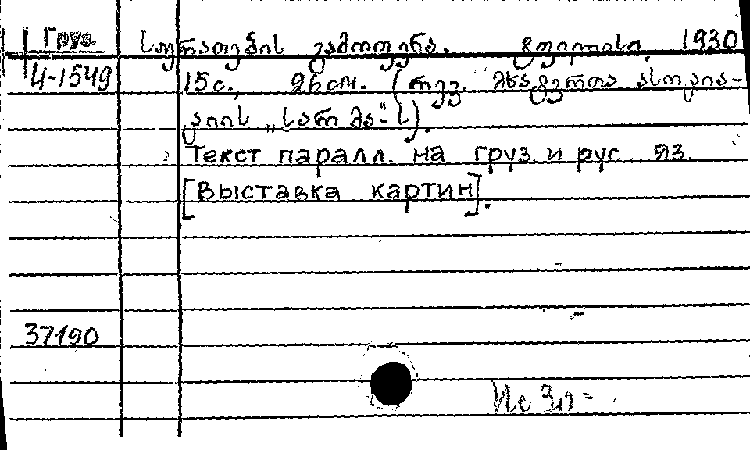 Груз. სურათების გამოფენა. ტფილისი, 1930
4-1549 15с., (რევ. მხატვართა ასოცია-
ციის „სარმა"-ს).
Текст паралл. на груз. и рус. яз.
[Выставка картин].
37190